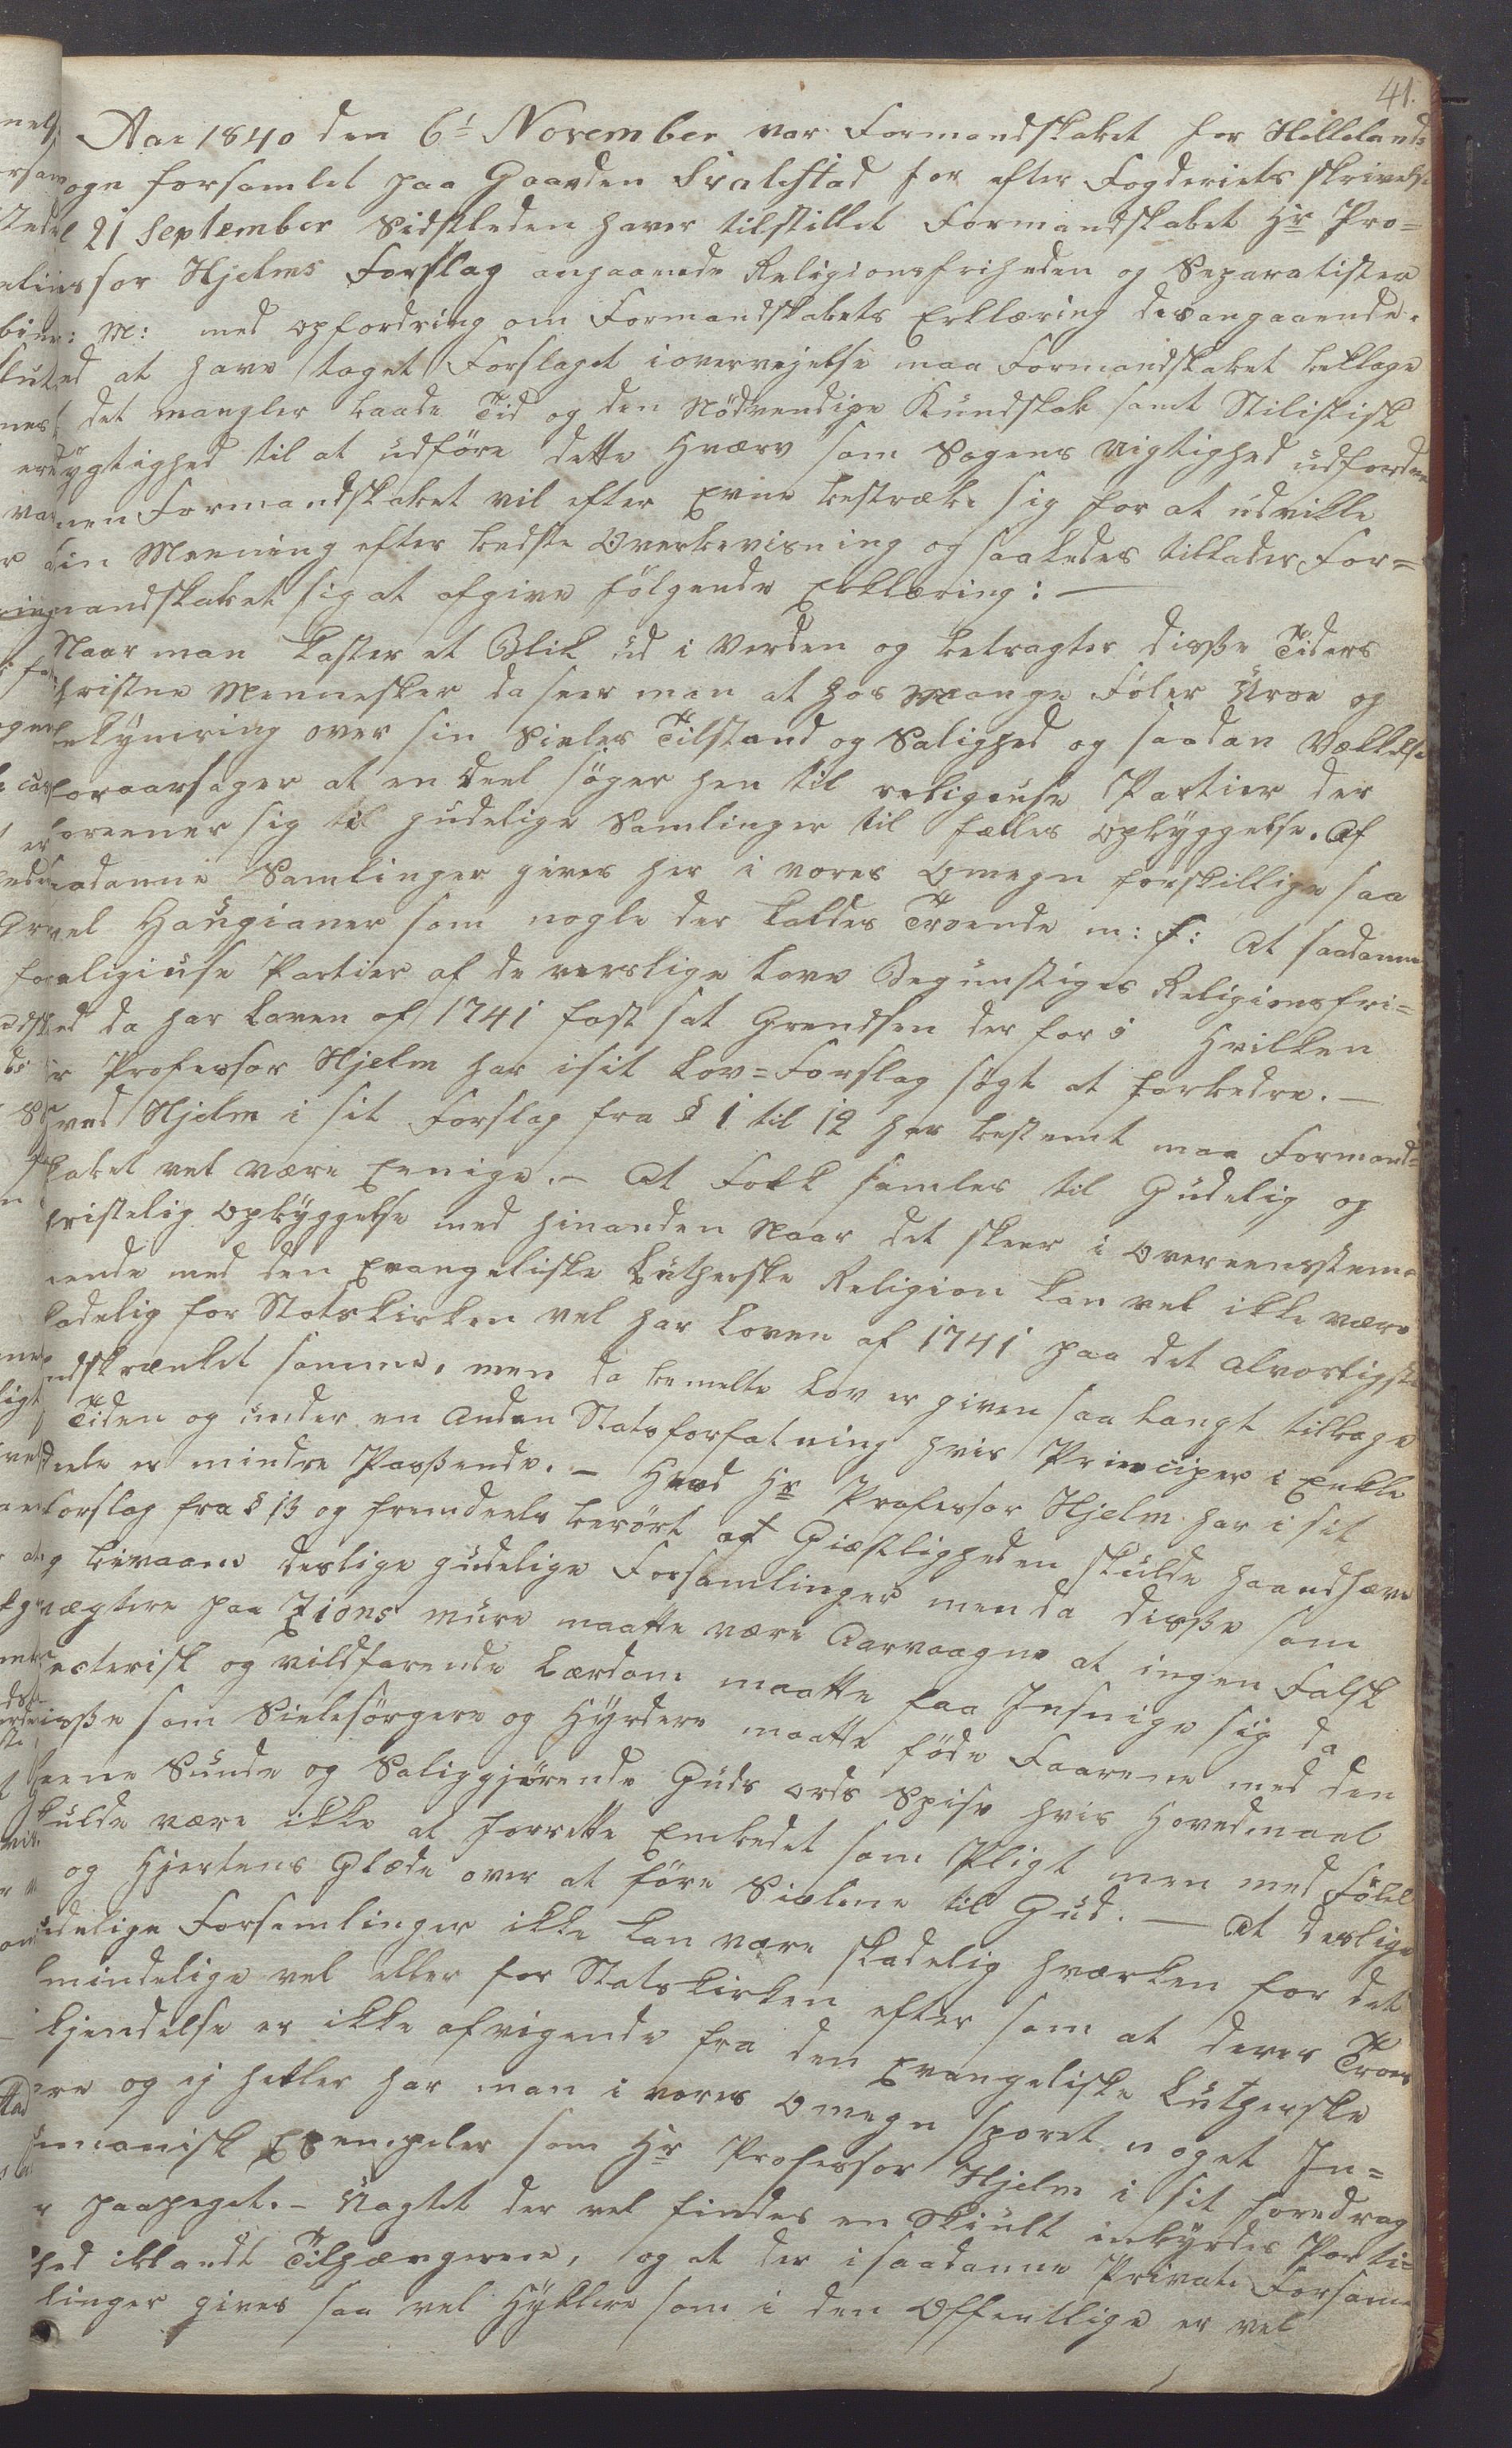 41.
Aar 1840 den 6t November var Formandskabet for Hellelands
ogn forsamlet paa Gaarden Svalestad for efter Fogderiets skrivelse
21 September Sidstleden haver tilstillet Formandskabet Hr Pro=
ssor Hjelms Forslag angaaende Religionsfriheden og Separatister
: M: med opfordring om Formandskabets Erklæring desangaaende.
ed at have taget Forslaget iovervejelse maa Formandskabet beklage
det mangler baade Tid og den Nödvendige Kundskab samt Stilistisk
ygtighed til at udföre dette Hværv som Sagens Vigtighed udfordrer
men Formandskabet vil efter Evne bestræbe sig for at udvikle
sin Meening efter bedste Overbevisning og saaledes tillader For=
mandskabet sig at afgive fölgende Erklæring: —
Naar man kaster et Blik ud i Verden og betragter disse Tiders
hristne Mennesker da seer man at hos Mange Föler Uroe og
ekymring over sin Sieles Tilstand og Salighed og saadan Vækkelse
foraarsager at en Deel söger hen til religeuse Partier der
foreener sig til gudelige Samlinger til fælles Opbyggelse. Af
aadanne Samlinger gives her i vores Omegn forskillige saa
vel Haugianer som nogle der kaldes Troende m: f: At saadanne
eligiuse Partier af de verslige Love Begunstiges Religionsfri=
ed da har Loven af 1741 fast sat Grendsen der for i Hvilken
r Professor Hjelm har isit Lov=Forslag sögt at forbedre. —
ved Hjelm i sit Forslag fra § 1 til 12 har bestemt maa Formand=
kabet vel være Eenige. — At Folk samles til Gudelig og
hristelig Opbyggelse med hinanden Naar det skeer i Overeensstem=
ende med den Evangeliske Lutherske Religion kan vel ikke være
kadelig for Statskirken vel har Loven af 1741 paa det Alvorligste
ndskrænket samme, men da bemelte Lov er given saa langt tilbage
Tiden og under en Anden Statsforfatning hvis Principer i Enkle
eele er mindre Passende. — Hvad Hr Professor Hjelm har i sit
orslag fra § 13 og fremdeels berört at Giæstligheden skulde haandhæve
g bivaane deslige gudelige Forsamlinger men da disse som
vægtere paa Zions Mure maatte være Aarvaagne at ingen Falsk
ecterisk og vildfarende Lærdom maatte faa Insnige sig da
isse som Sielesörgere og Hyrdere maatte föde Faarene med den
eene Sunde og Saliggjörende Guds Ords Spise hvis Hovedmaal
kulde være ikke at forrette Embedet som Pligt men med Fölel
og Hjertens Glæde over at före Sielene til Gud. — At deslige
udelige Forsamlinger ikke kan være skadelig hværken for det
lmindelige vel eller for Statskirken efter som at deres Troes
kjendelse er ikke afvigende fra den Evangeliske Lutherske
ære og ej heller har man i vores Omegn sporet noget In=
umanisk Exempeler som Hr Professor Hjelm i sit foredrag
paapeget. — Uagtet der vel findes en skiult inbyrdes Parti=
hed iblandt Tilhængerne, og at der i saadanne Private Forsam
linger gives saa vel Hyklere som i den Offentlige er vel